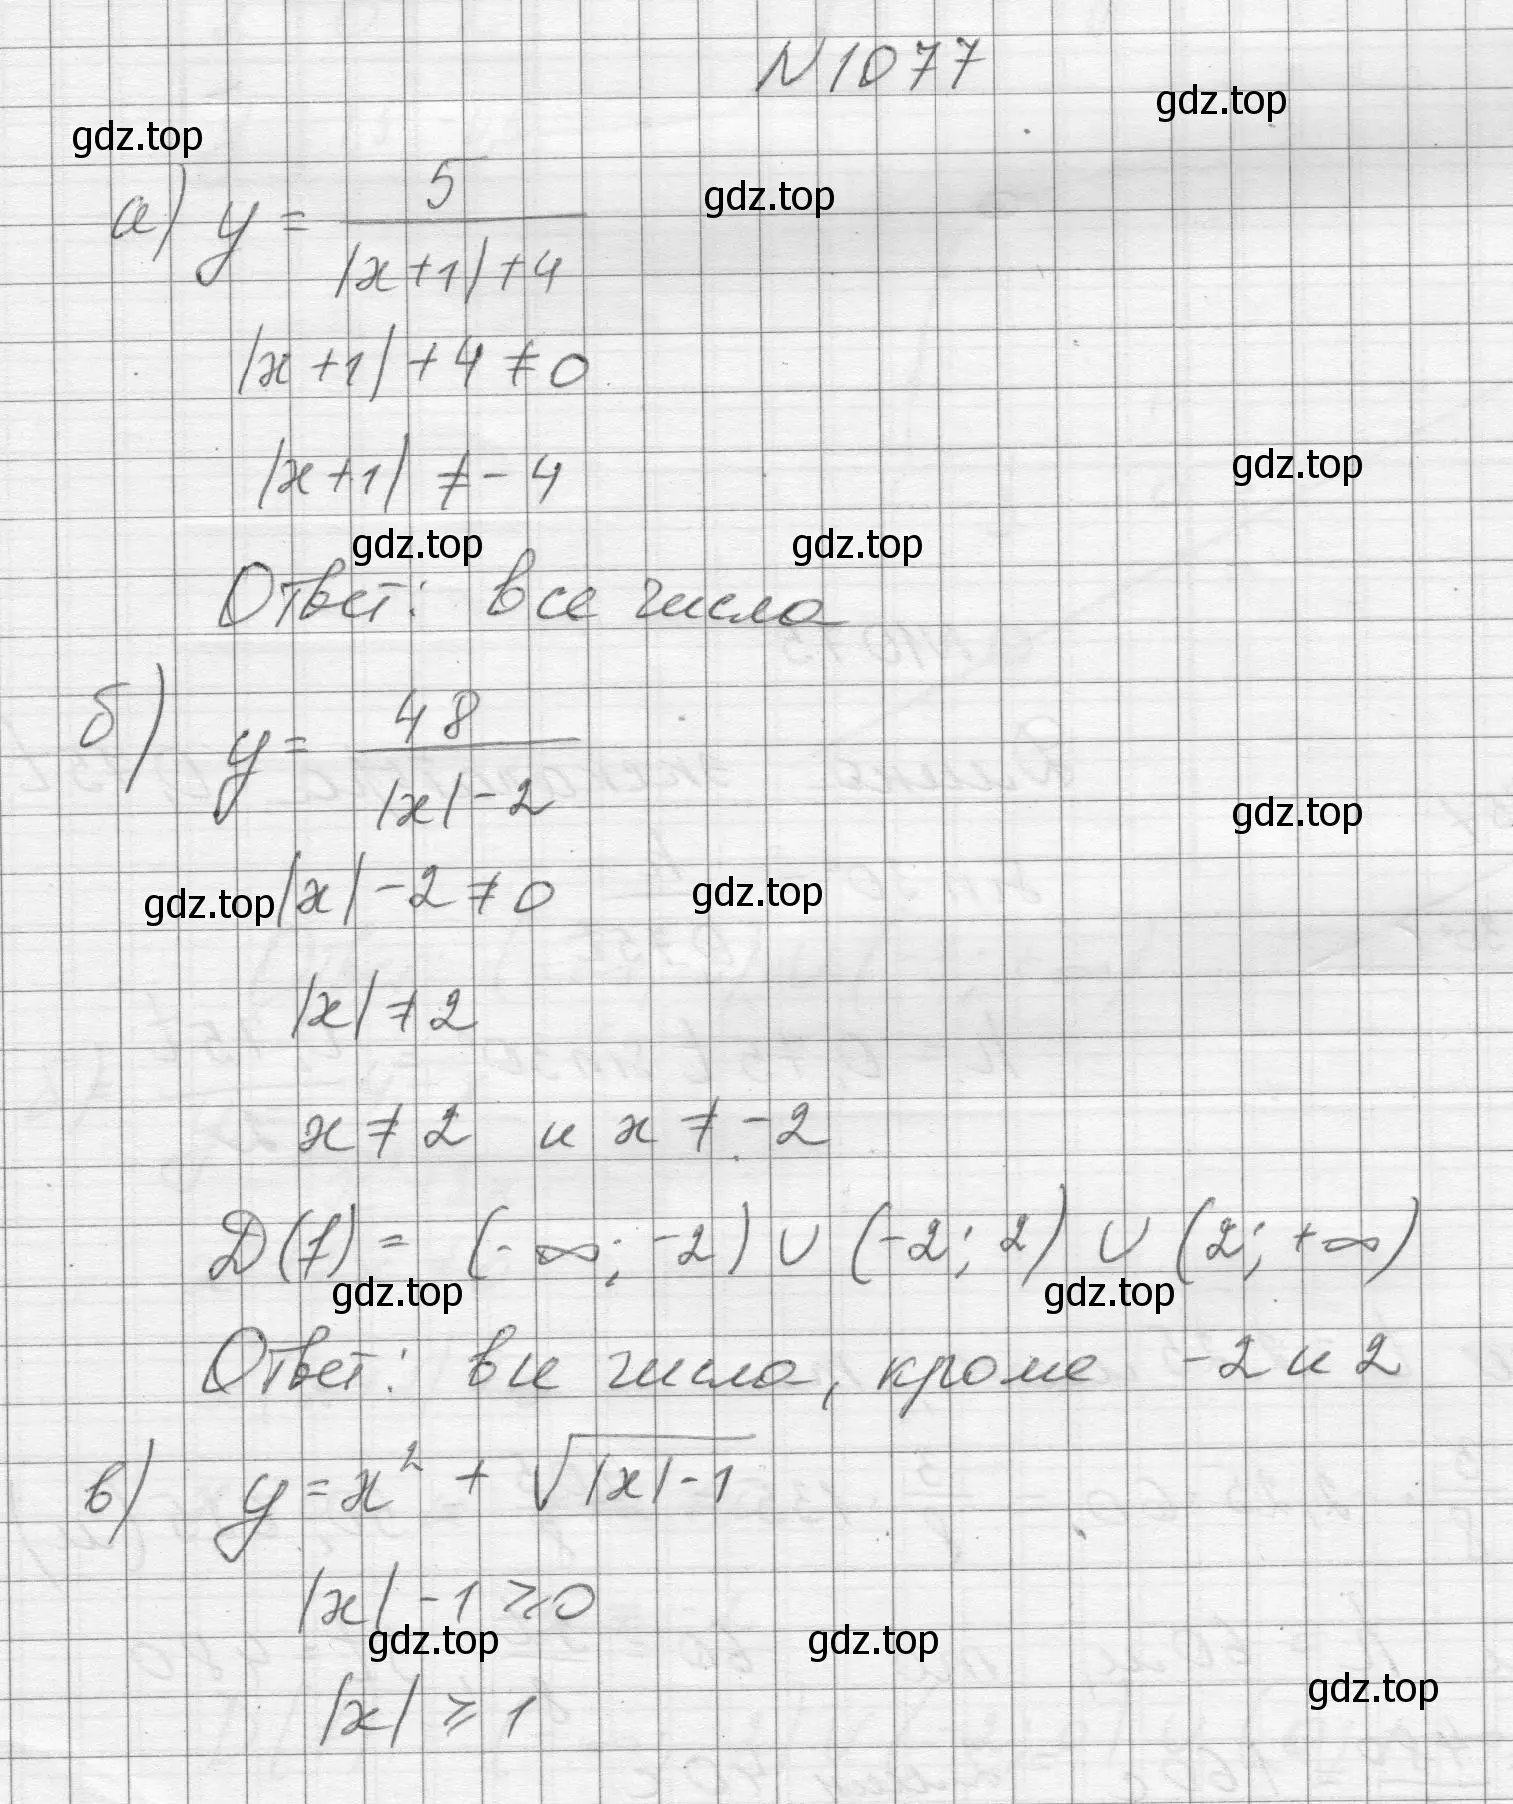 N1077
gdz.top
gdz.top
gdz.top
а) y = 5 / (|x+1|+4)
|x+1|+4≠0
|x+1| ≠ -4
gdz.top
gdz.top gdz.top
Ответ: все числа
б) y = 48 / (|x|-2)
gdz.top
gdz.top |x|-2≠0 gdz.top
|x|≠2
x≠2 и x≠-2
D(f) = (-∞; -2) ∪ (-2; 2) ∪ (2; +∞)
gdz.top gdz.top
Ответ: все числа, кроме -2 и 2
в) y = x² + √(|x|-1)
|x|-1≥0
gdz.top gdz.top
gdz.top
|x| ≥ 1